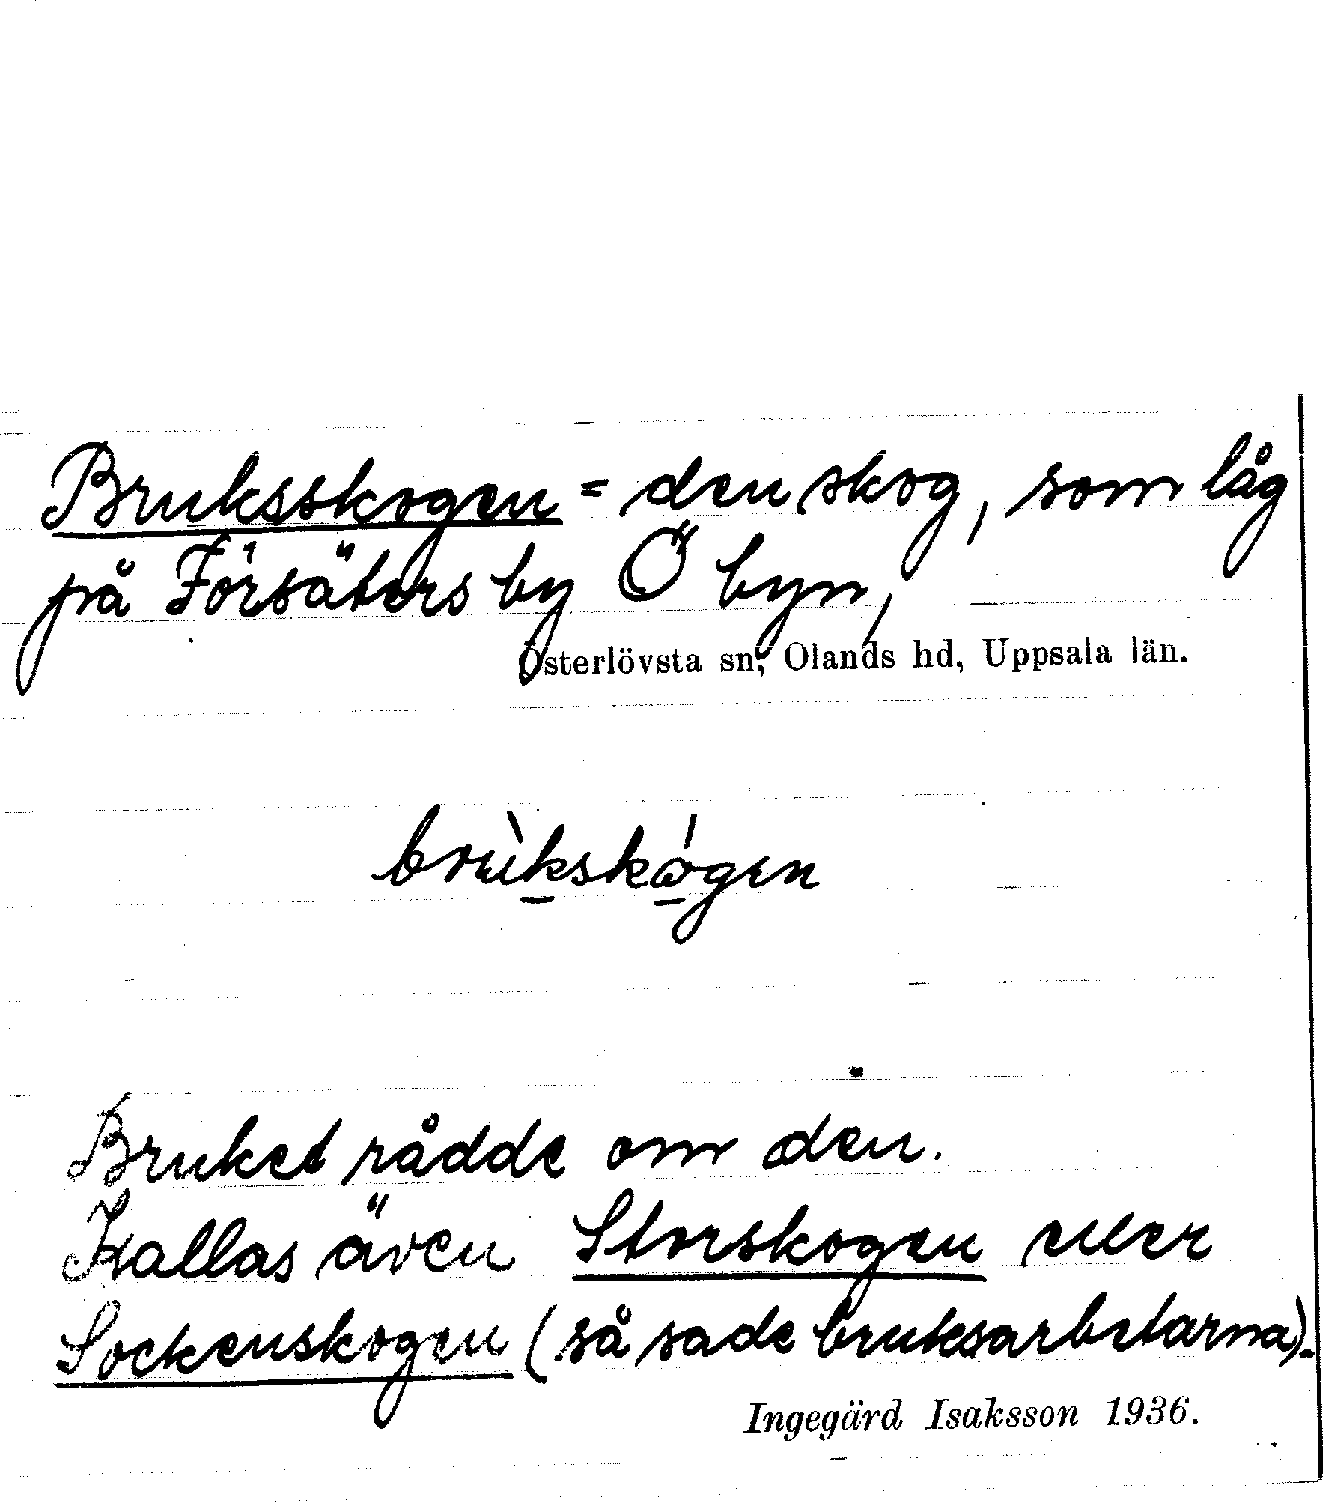 Bruksskogen = den skog, som låg
på Försäters by Ö byn,
Österlövsta sn, Olands hd, Uppsala län.
brùkskǿgen
Bruket rådde om den.
Kallas även Storskogen eller
Sockenskogen (så sade bruksarbetarna).
Ingegärd Isaksson 1936.